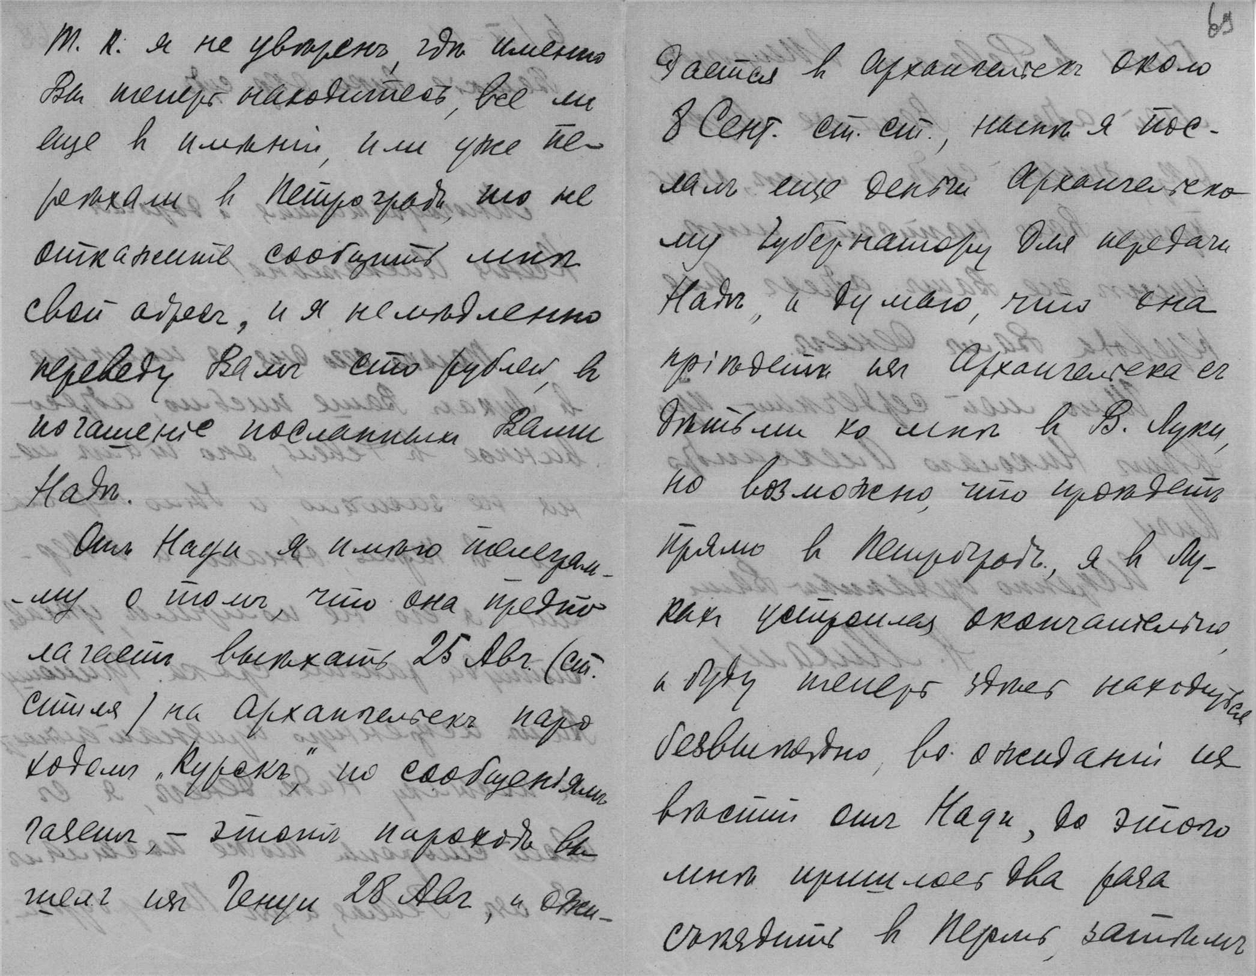 Т. к. я не увѣренъ, гдѣ именно
Вы теперь находитесь, все ли
еще в имѣніи, или уже пе-
реѣхали в Петроградъ, то не
откажите сообщить мнѣ
свой адресъ, и я немѣдленно
переведу Вамъ сто рублей, в
погашеніе посланныхъ Вами
Надѣ.
Отъ Нади я имѣю телеграм-
-му о томъ что она предпо-
лагаетъ выѣхать 25 Авг. (ст.
стиля) на Архангельскъ паро
ходомъ „Курскъ" по сообщеніямъ
газетъ – этотъ пароходъ вы
шелъ изъ Генуи 28 Авг., и ожи-
69
дается в Архангельскъ около
8 Сент. ст. ст., я пос-
лалъ еще деньги Архангельско
му Губернатору для передачи
Надѣ, и думаю, что она
пріѣдетъ изъ Архангельска съ
дѣтьми ко мнѣ в В. Луки,
но возможно, что проѣдетъ
прямо в Петроградъ, я в Лу-
кахъ устроился окончательно,
и буду теперь здѣсь находиться
безвыѣздно, во ожиданіи из
вѣстій отъ Нади, до этого
мнѣ пришлось два раза
съѣздить в Пермь, затѣмъ